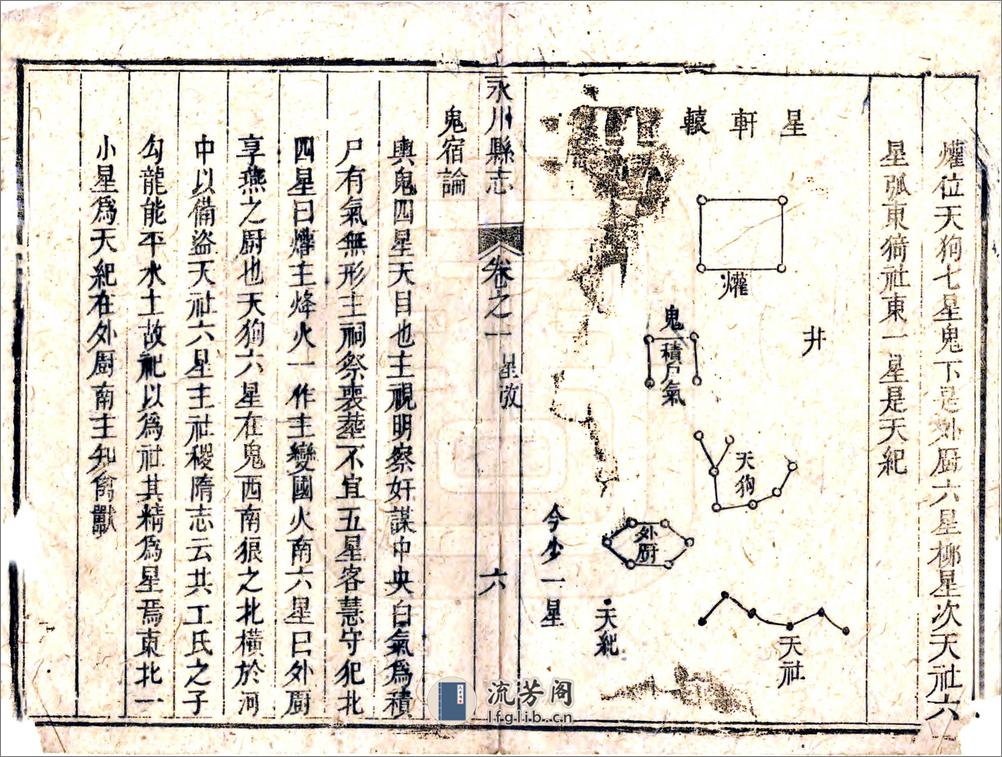 爟位天狗七星鬼下是外厨六星柳星次天社六
星弧東猗社東一星是天紀
星
軒
轅
爟
井
鬼
積尸氣
天狗
外厨
天社
天紀
今少一星
永川縣志
卷之一
星攷
六
鬼宿論
輿鬼四星天目也主視明察奸謀中央白氣爲積
尸有氣無形主祠祭喪葬不宜五星客慧守犯北
四星曰爟主烽火一作主變國火南六星曰外厨
享燕之厨也天狗六星在鬼西南狼之北橫於河
中以備盜天社六星主社稷隋志云共工氏之子
勾龍能平水土故祀以爲社其精爲星焉東北一
小星爲天紀在外厨南主知禽獸
流芳阁
lfglib.cn